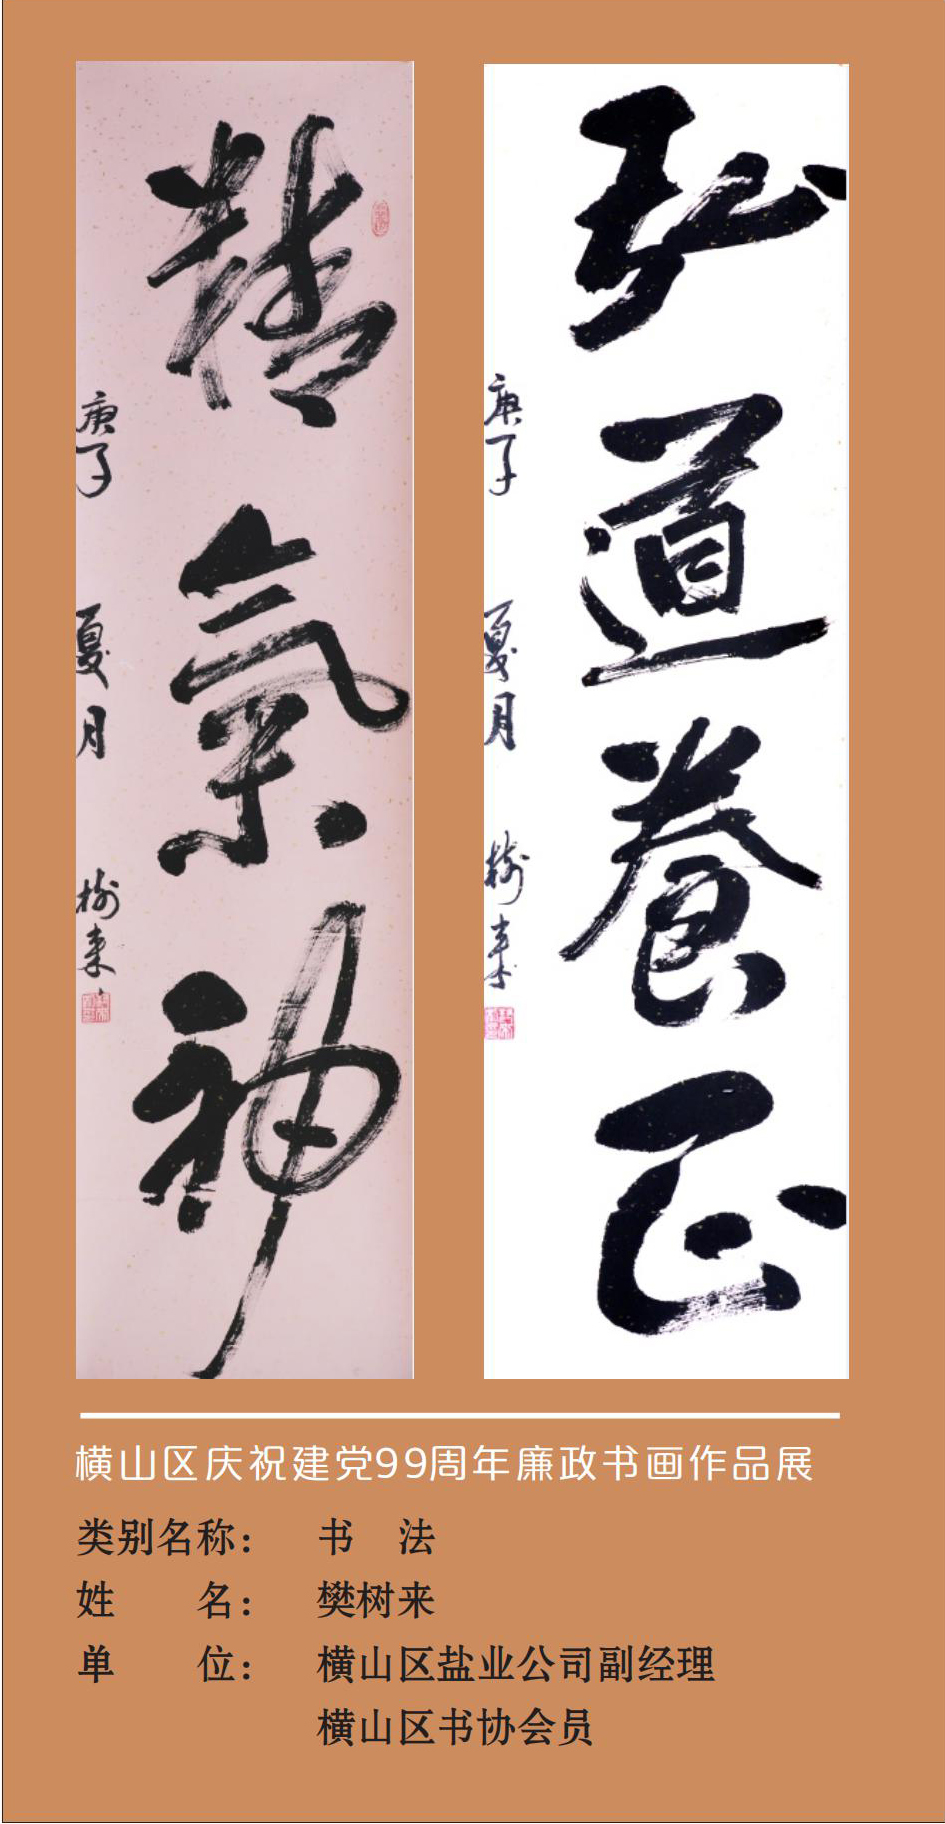 精氣神
庚子 夏月 树来
弘道養正
庚子 夏月 树来
横山区庆祝建党99周年廉政书画作品展
类别名称： 书 法
姓 名： 樊树来
单 位： 横山区盐业公司副经理
横山区书协会员